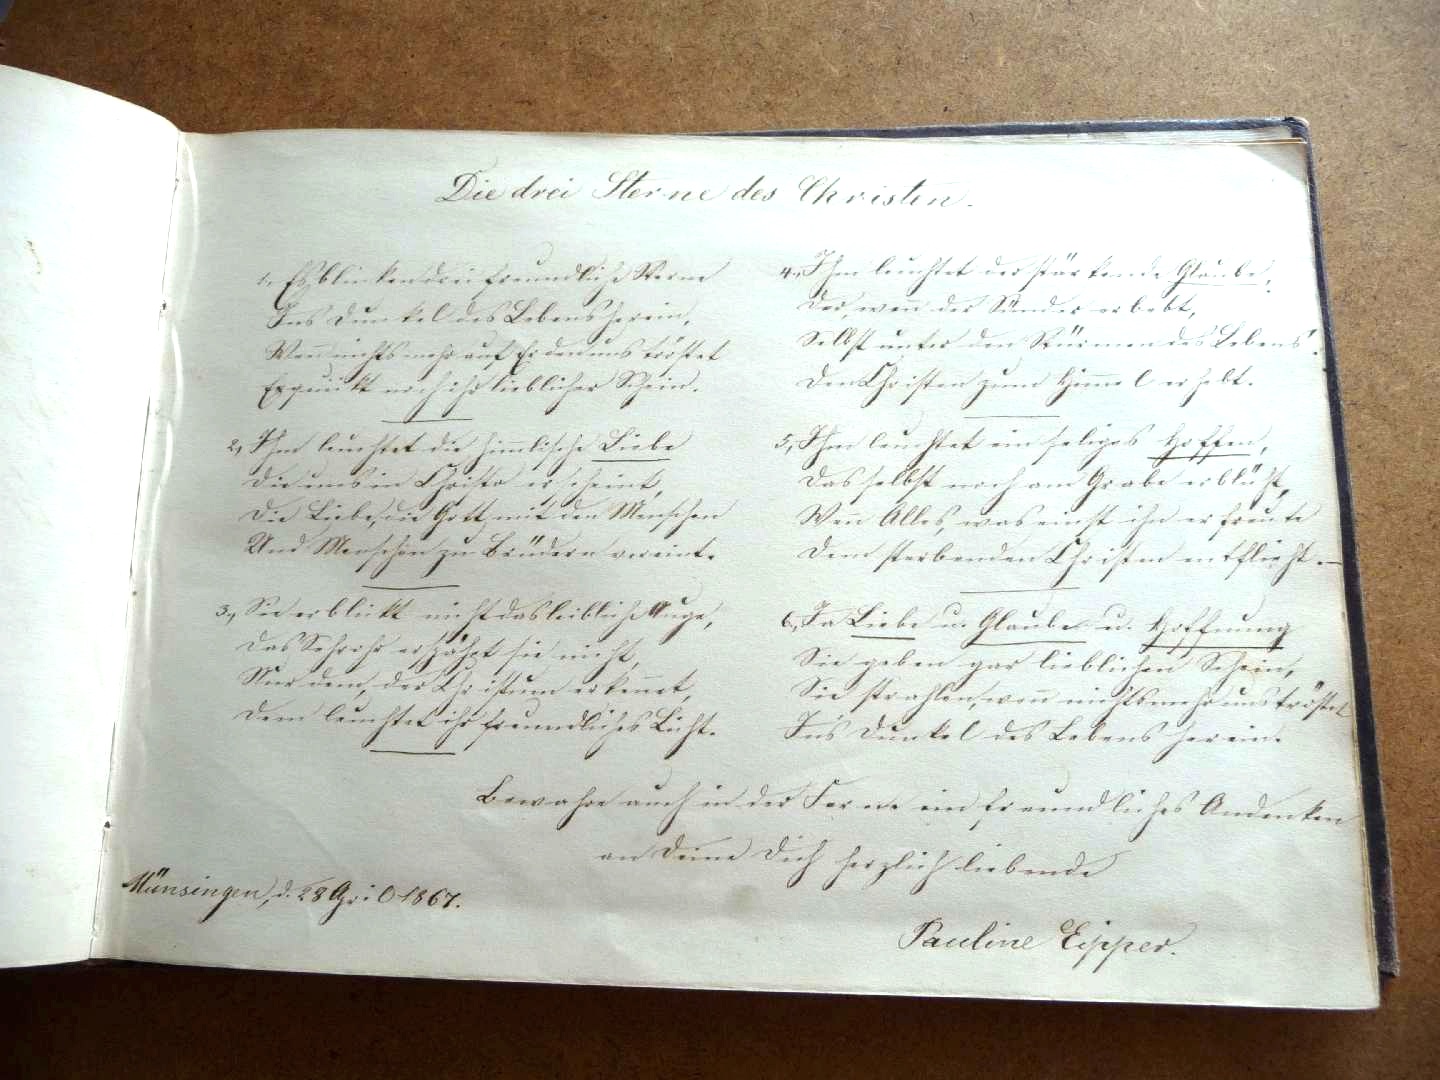 Die drei Sterne des Christen.
1., Es blinken drei freundliche Sterne
Ins Dunkel des Lebens herein,
Wen̄ nichts mehr auf Erden uns tröstet
Erquikt noch ihr lieblicher Schein.
2., Ihm leuchtet die him̄lische Liebe
Die uns in Christo erscheint,
Die Liebe, die Gott mit den Menschen
Und Menschen zu Brüdern vereint.
3., Sie erblikt nicht das leibliche Auge,
Das Sehrohr erspäht sie nicht,
Nur dem, der Christum erken̄et,
Dem leuchtet ihr freundliches Licht.
4., Ihm leuchtet der stärkende Glaube,
Der, wen̄ der Sünder erbebt,
Selbst unter den Stürmen des Lebens
Den Christen zum Him̄el erhebt.
5., Ihm leuchtet ein seliges Hoffen,
Das selbst noch am Grabe erblüht,
Wen̄ Alles, was einst ihn erfreute
Dem sterbenden Christen entflieht. –
6., Ja Liebe u. Glaube u. Hoffnung
Sie geben gar lieblichen Schein,
Sie strahlen, wen̄ nichts mehr uns tröstet
In's Dunkel des Lebens herein.
Bewahre auch in der Ferne ein freundliches Andenken
an Deine Dich herzlich liebende
Münsingen, d. 28 April 1867.
Pauline Eipper.